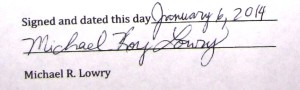 Signed and dated this day January 6, 2014
Michael Roy Lowry
Michael R. Lowry